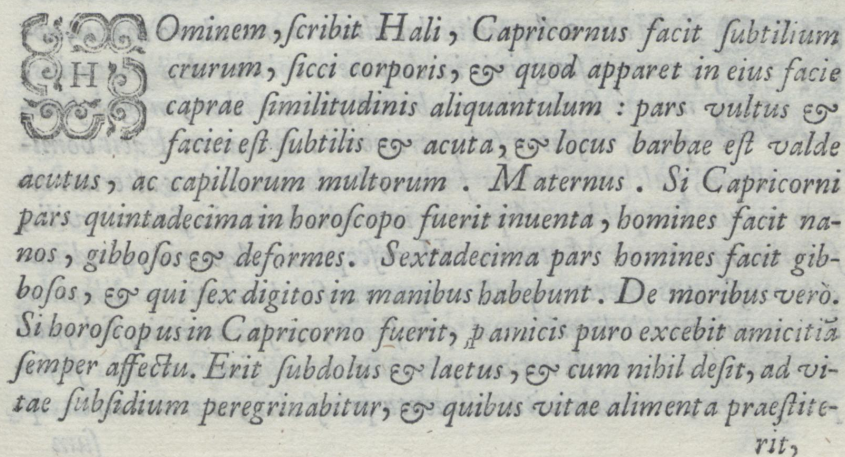 HOminem, ſcribit Hali, Capricornus facit ſubtilium
crurum, ſicci corporis, & quod apparet in eius facie
caprae ſimilitudinis aliquantulum : pars vultus &
faciei eſt ſubtilis & acuta, & locus barbae eſt valde
acutus, ac capillorum multorum . Maternus . Si Capricorni
pars quintadecima in horoſcopo fuerit inuenta, homines facit na-
nos, gibboſos & deformes. Sextadecima pars homines facit gib-
boſos, & qui ſex digitos in manibus habebunt. De moribus verò.
Si horoſcopus in Capricorno fuerit, ꝓ amicis puro excebit amicitiã
ſemper affectu. Erit ſubdolus & laetus, & cum nihil deſit, ad vi-
tae ſubſidium peregrinabitur, & quibus vitae alimenta praeſtite-
rit,